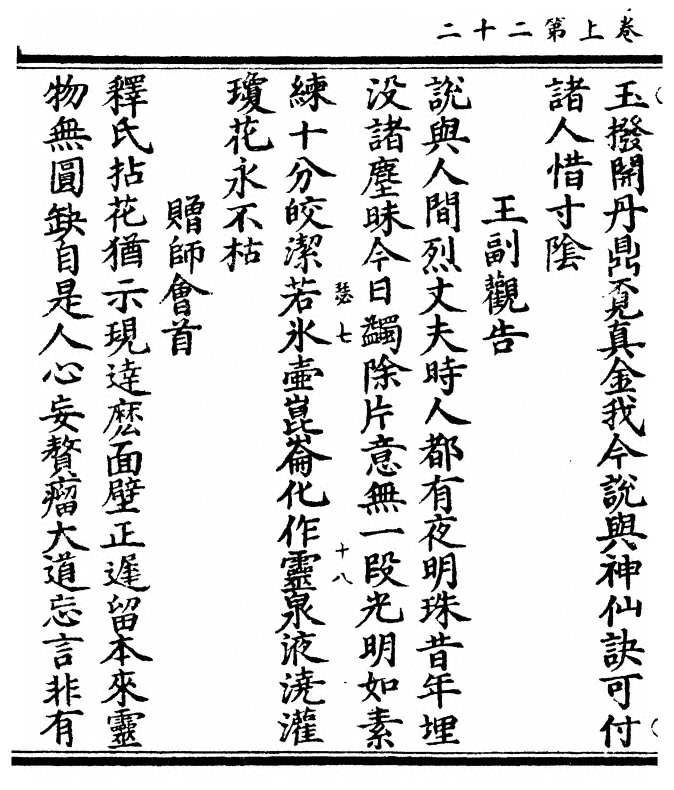 卷上第二十二
玉撥開丹鼎覔真金我今說與神仙訣可付
諸人惜寸陰
王副觀告
說與人間烈丈夫時人都有夜明珠昔年埋
没諸塵昧今日蠲除片意無一段光明如素
瑟七
十八
練十分皎潔若氷壷崑崙化作靈泉液澆灌
瓊花永不枯
贈師會首
釋氏拈花猶示現達麽面壁正遲留本來靈
物無圓缺自是人心妄贅瘤大道忘言非有